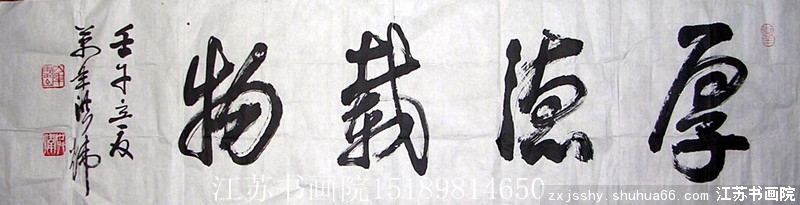 厚德载物
壬午立夏
江苏书画院15189814650
zxjsshy.shuhua66.com 江苏书画院